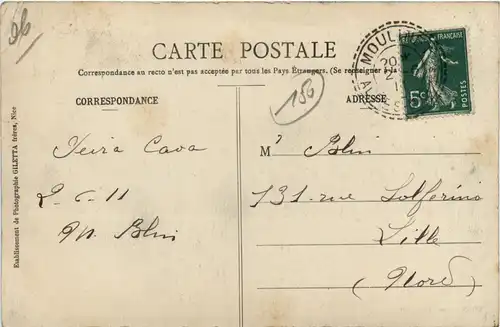 96
CARTE POSTALE
Correspondance au recto n'est pas acceptée par tous les Pays Étrangers. (Se renseigner à la
CORRESPONDANCE
156
ADRESSE
MOULI
20
2
FRANÇAISE
5c
POSTES
Peira Cava
2-6-11
M. Blin
M
r Blin
131 rue Solferino
Lille
(Nord)
Etablissement de Photographie GILETTA frères, Nice